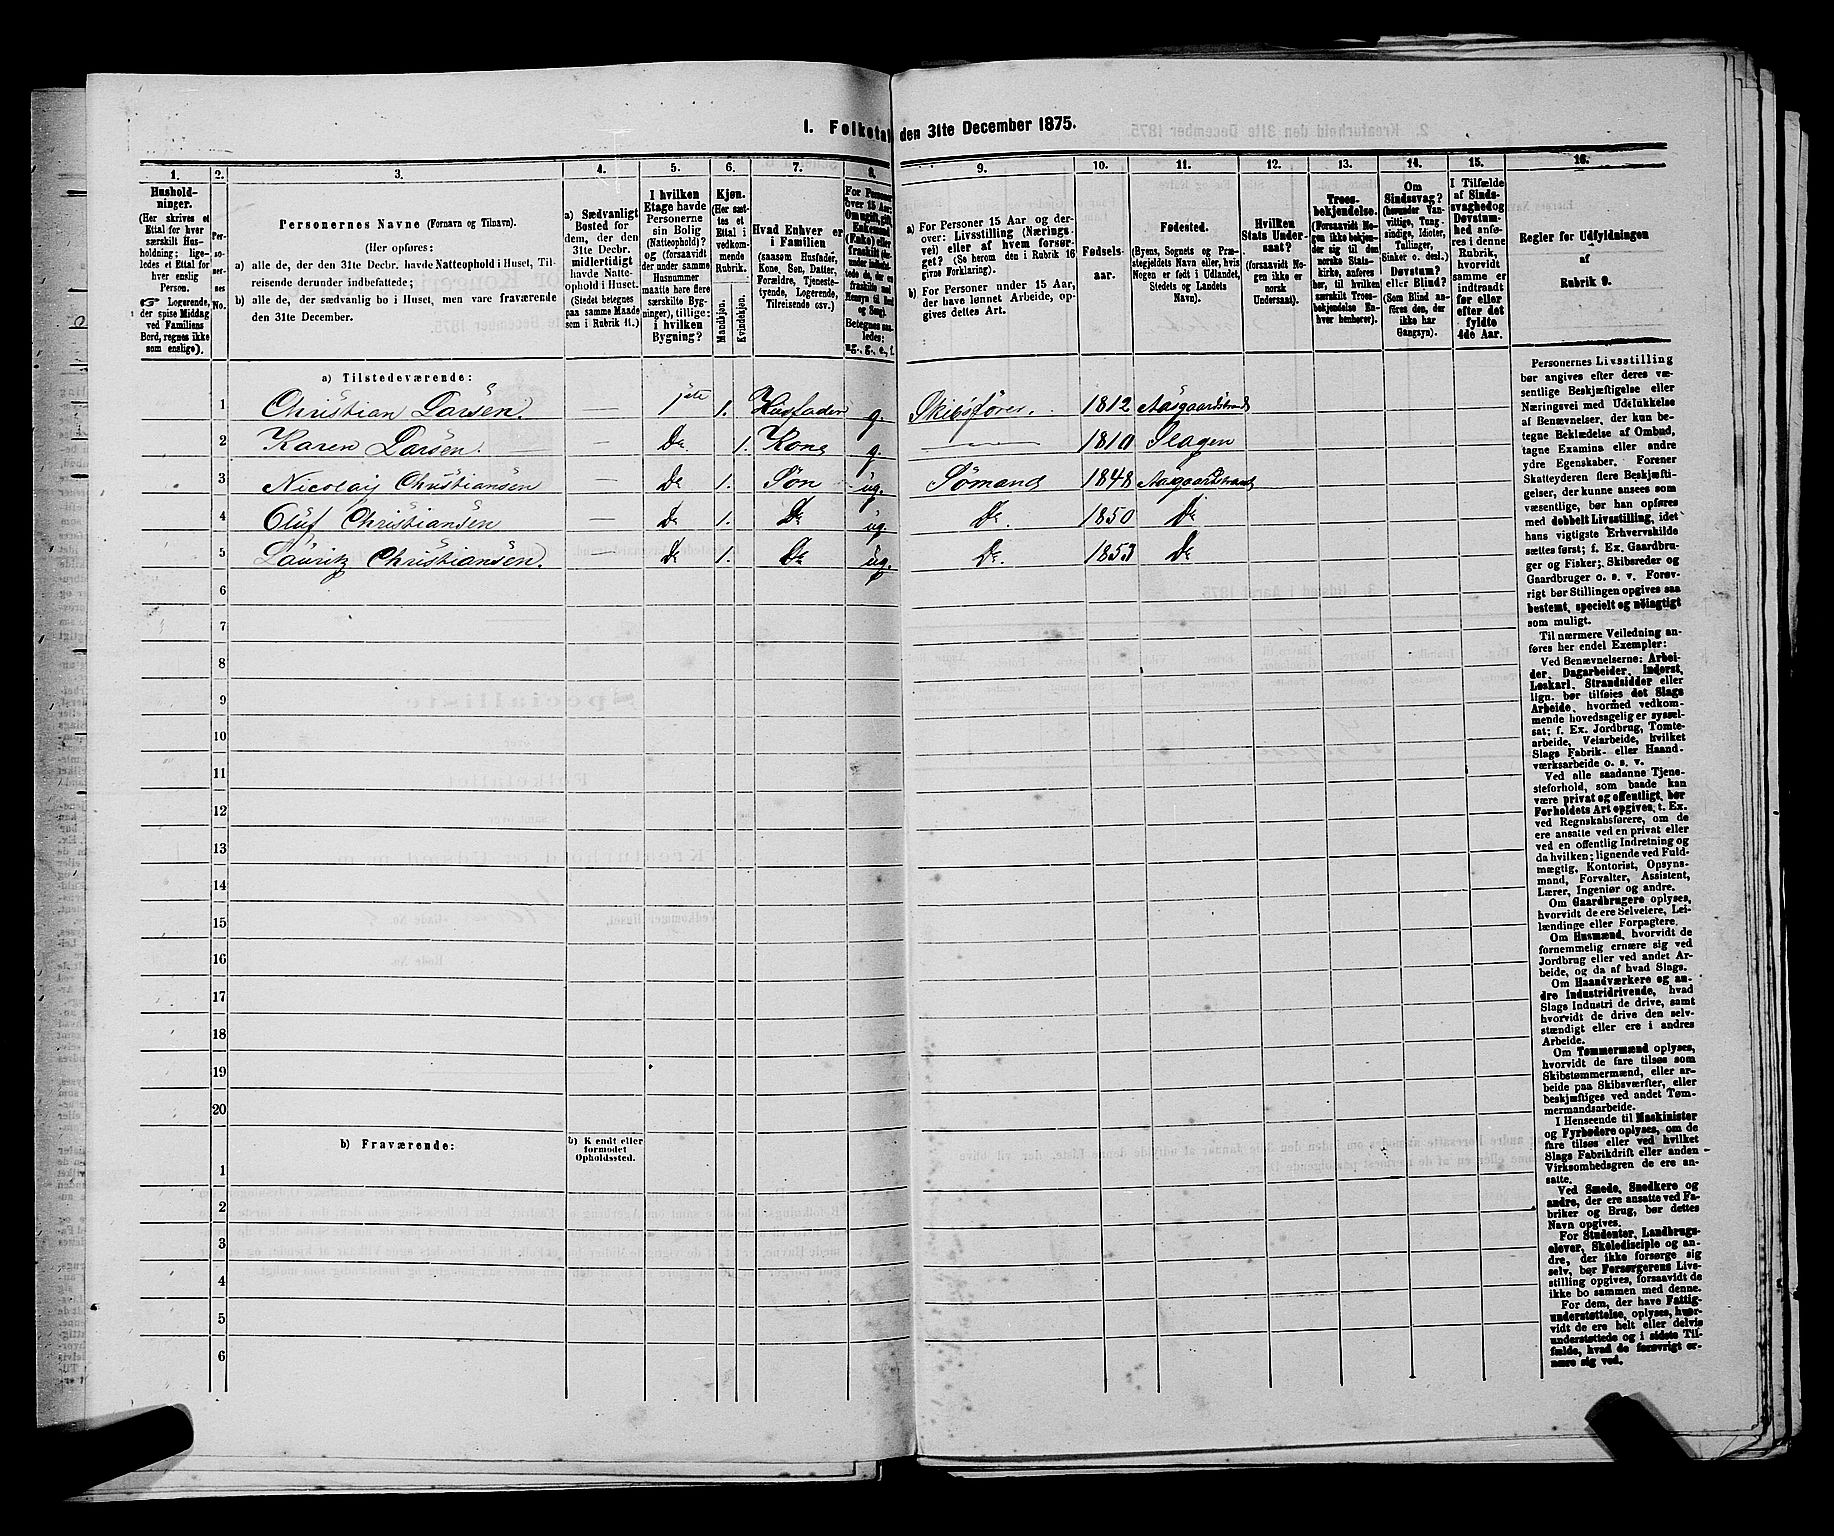 1. Folketal den 31te December 1875.
1. 2. 3. 4. 5. 6. 7. 8. 9. 10. 11. 12. 13. 14. 15. 16.
Hushold-
ninger.
(Her skrives et
Ettal for hver
særskilt Hus-
holdning; lige-
ledes et Ettal for
hver enslig
Person.
Logerende,
der spise Middag
ved Familiens
Bord, regnes ikke
som enslige).
Per-
so-
ner-
nes
No.
Personernes Navne (Fornavn og Tilnavn).
(Her opføres:
a) alle de, der den 31te Decbr. havde Natteophold i Huset, Til-
reisende derunder indbefattede;
b) alle de, der sædvanlig bo i Huset, men vare fraværende
den 31te December.
a) Sædvanligt
Bosted for
dem, der den
31te Decbr.
midlertidigt
havde Natte-
ophold i Huset.
(Stedet betegnes
paa samme Maade
som i Rubrik 11.)
I hvilken
Etage havde
Personerne
sin Bolig
(Natteophold)?
og (forsaavidt
der under samme
Husnummer
maatte høre flere
særskilte Byg-
ninger), tillige:
i hvilken
Bygning?
Kjøn.
(Her sæt-
tes et
Ettal i
vedkom-
mende
Rubrik.
Mandkjøn.
Kvindekjøn.
Hvad Enhver er
i Familien
(saasom Husfader,
Kone, Søn, Datter,
Forældre, Tjeneste-
tyende, Logerende,
Tilreisende osv.)
For Personer
over 15 Aar:
Om ugift, gift,
Enkemand
(Enke) eller
fraskilt
Betegnes saa-
ledes:
ug., g., e., f.
a) For Personer 15 Aar og der-
over: Livsstilling (Nærings-
vei) eller af hvem forsør-
get? (Se herom den i Rubrik 16
givne Forklaring).
b) For Personer under 15 Aar,
der have lønnet Arbeide, op-
gives dettes Art.
Fødsels-
aar.
Fødested.
(Byens, Sognets og Præ-
stegjeldets Navn eller, hvis
Nogen er født i Udlandet,
Stedets og Landets
Navn).
Hvilken
Stats Under-
saat?
(forsaavidt No-
gen ikke er
norsk
Undersaat).
Troes-
bekjendelse.
(Forsaavidt No-
gen ikke bekjen-
der sig til den
norske Stats-
kirke, anføres
her, til hvilken
særskilt Troes-
bekjendelse En-
hver henhører).
Om
Sindssvag?
(herunder Van-
vittige, Tung-
sindige, Idioter,
Tullinger,
Sinker o. desl.)
Døvstum?
eller Blind?
(Som Blind an-
føres den, der
ikke har
Gangsyn).
I Tilfælde
af Sinds-
svaghed og
Døvstum-
hed anfø-
res i denne
Rubrik,
hvorvidt
samme er
indtraadt
før eller
efter det
fyldte
4de Aar.
Regler for Udfyldningen
af
Rubrik 9.
a) Tilstedeværende:
1 Christian Larsen. — 1ste 1. Husfader g. Skibsfører. 1812 Aasgaardstrand
2 Karen Larsen. — Do. 1. Kone g. — 1810 Slagen
3 Nicolaiy Christiansen — Do 1. Søn ug. Sømand 1848 Aasgaardstrand
4 Oluf Christiansen — Do 1. Do ug Do. 1850 Do
5 Lauritz Christiansen. Do 1. Do ug. Do. 1853 Do
6
7
8
9
10
11
12
13
14
15
16
17
18
19
20
b) Fraværende:
b) Kjendt eller
formodet
Opholdssted.
1
2
3
4
5
6
Personernes Livsstilling
bør angives efter deres væ-
sentlige Beskjæftigelse eller
Næringsvei med Udelukkelse
af Benævnelser, der kun be-
tegne Beklædelse af Ombud,
tagne Examina eller andre
ydre Egenskaber. Forener
Skatteyderen flere Beskjæfti-
gelser, der kunne ansees som
væsentlige, bør han opføres
med dobbelt Livsstilling, idet
hans vigtigste Erhvervskilde
sættes først; f. Ex. Gaardbru-
ger og Fisker; Skibsreder og
Gaardbruger o. s. v. Forøv-
rigt bør Stillingen opgives saa
bestemt, specielt og nøiagtigt
som muligt.
Til nærmere Veiledning an-
føres her endel Exempler:
Ved Benævnelserne: Arbei-
der, Dagarbeider, Inderst,
Løskarl, Strandsidder eller
lign. bør tilføies det Slags
Arbeide, hvormed vedkom-
mende hovedsagelig er syssel-
sat; f. Ex. Jordbrug, Tomte-
arbeide, Veiarbeide, hvilket
Slags Fabrik- eller Haand-
værksarbeide o. s. v.
Ved alle saadanne Tjene-
steforhold, som baade kan
være privat og offentligt, bør
Forholdets Art opgives, t. Ex.
ved Regnskabsførere, om de
ere ansatte ved en privat eller
ved en offentlig Indretning og
da hvilken; lignende ved Fuld-
mægtig, Kontorist, Opsyns-
mand, Forvalter, Assistent,
Lærer, Ingeniør og andre.
Om Gaardbrugere oplyses,
hvorvidt de ere Selveiere, Lei-
lændinge eller Forpagtere.
Om Husmænd, hvorvidt de
fornemmelig ernære sig ved
Jordbrug eller ved andet Ar-
beide, og da af hvad Slags.
Om Haandværkere og an-
dre Industridrivende, hvad
Slags Industri de drive, samt
hvorvidt de drive den selv-
stændigt eller ere i andres
Arbeide.
Om Tømmermænd oplyses,
hvorvidt de fare tilsøs som
Skibstømmermænd, eller ar-
beide paa Skibsværfter, eller
beskjæftiges ved andet Tøm-
mermandsarbeide.
I Henseende til Maskinister
og Fyrbødere oplyses, om de
fare tilsøs eller ved hvilket
Slags Fabrikdrift eller anden
Virksomhedsgren de ere an-
satte.
Ved Smede, Snedkere og
andre, der ere ansatte ved Fa-
briker og Brug, bør dettes
Navn opgives.
For Studenter, Landbrugs-
elever, Skoledisciple og an-
dre, der ikke forsørge sig
selv, bør Forsørgerens Livs-
stilling opgives, forsaavidt de
ikke bo sammen med denne.
For dem, der have Fattig-
understøttelse, oplyses, hvor-
vidt de ere helt eller delvis
understøttede og i sidste Til-
fælde, hvad de forøvrigt er-
nære sig ved.